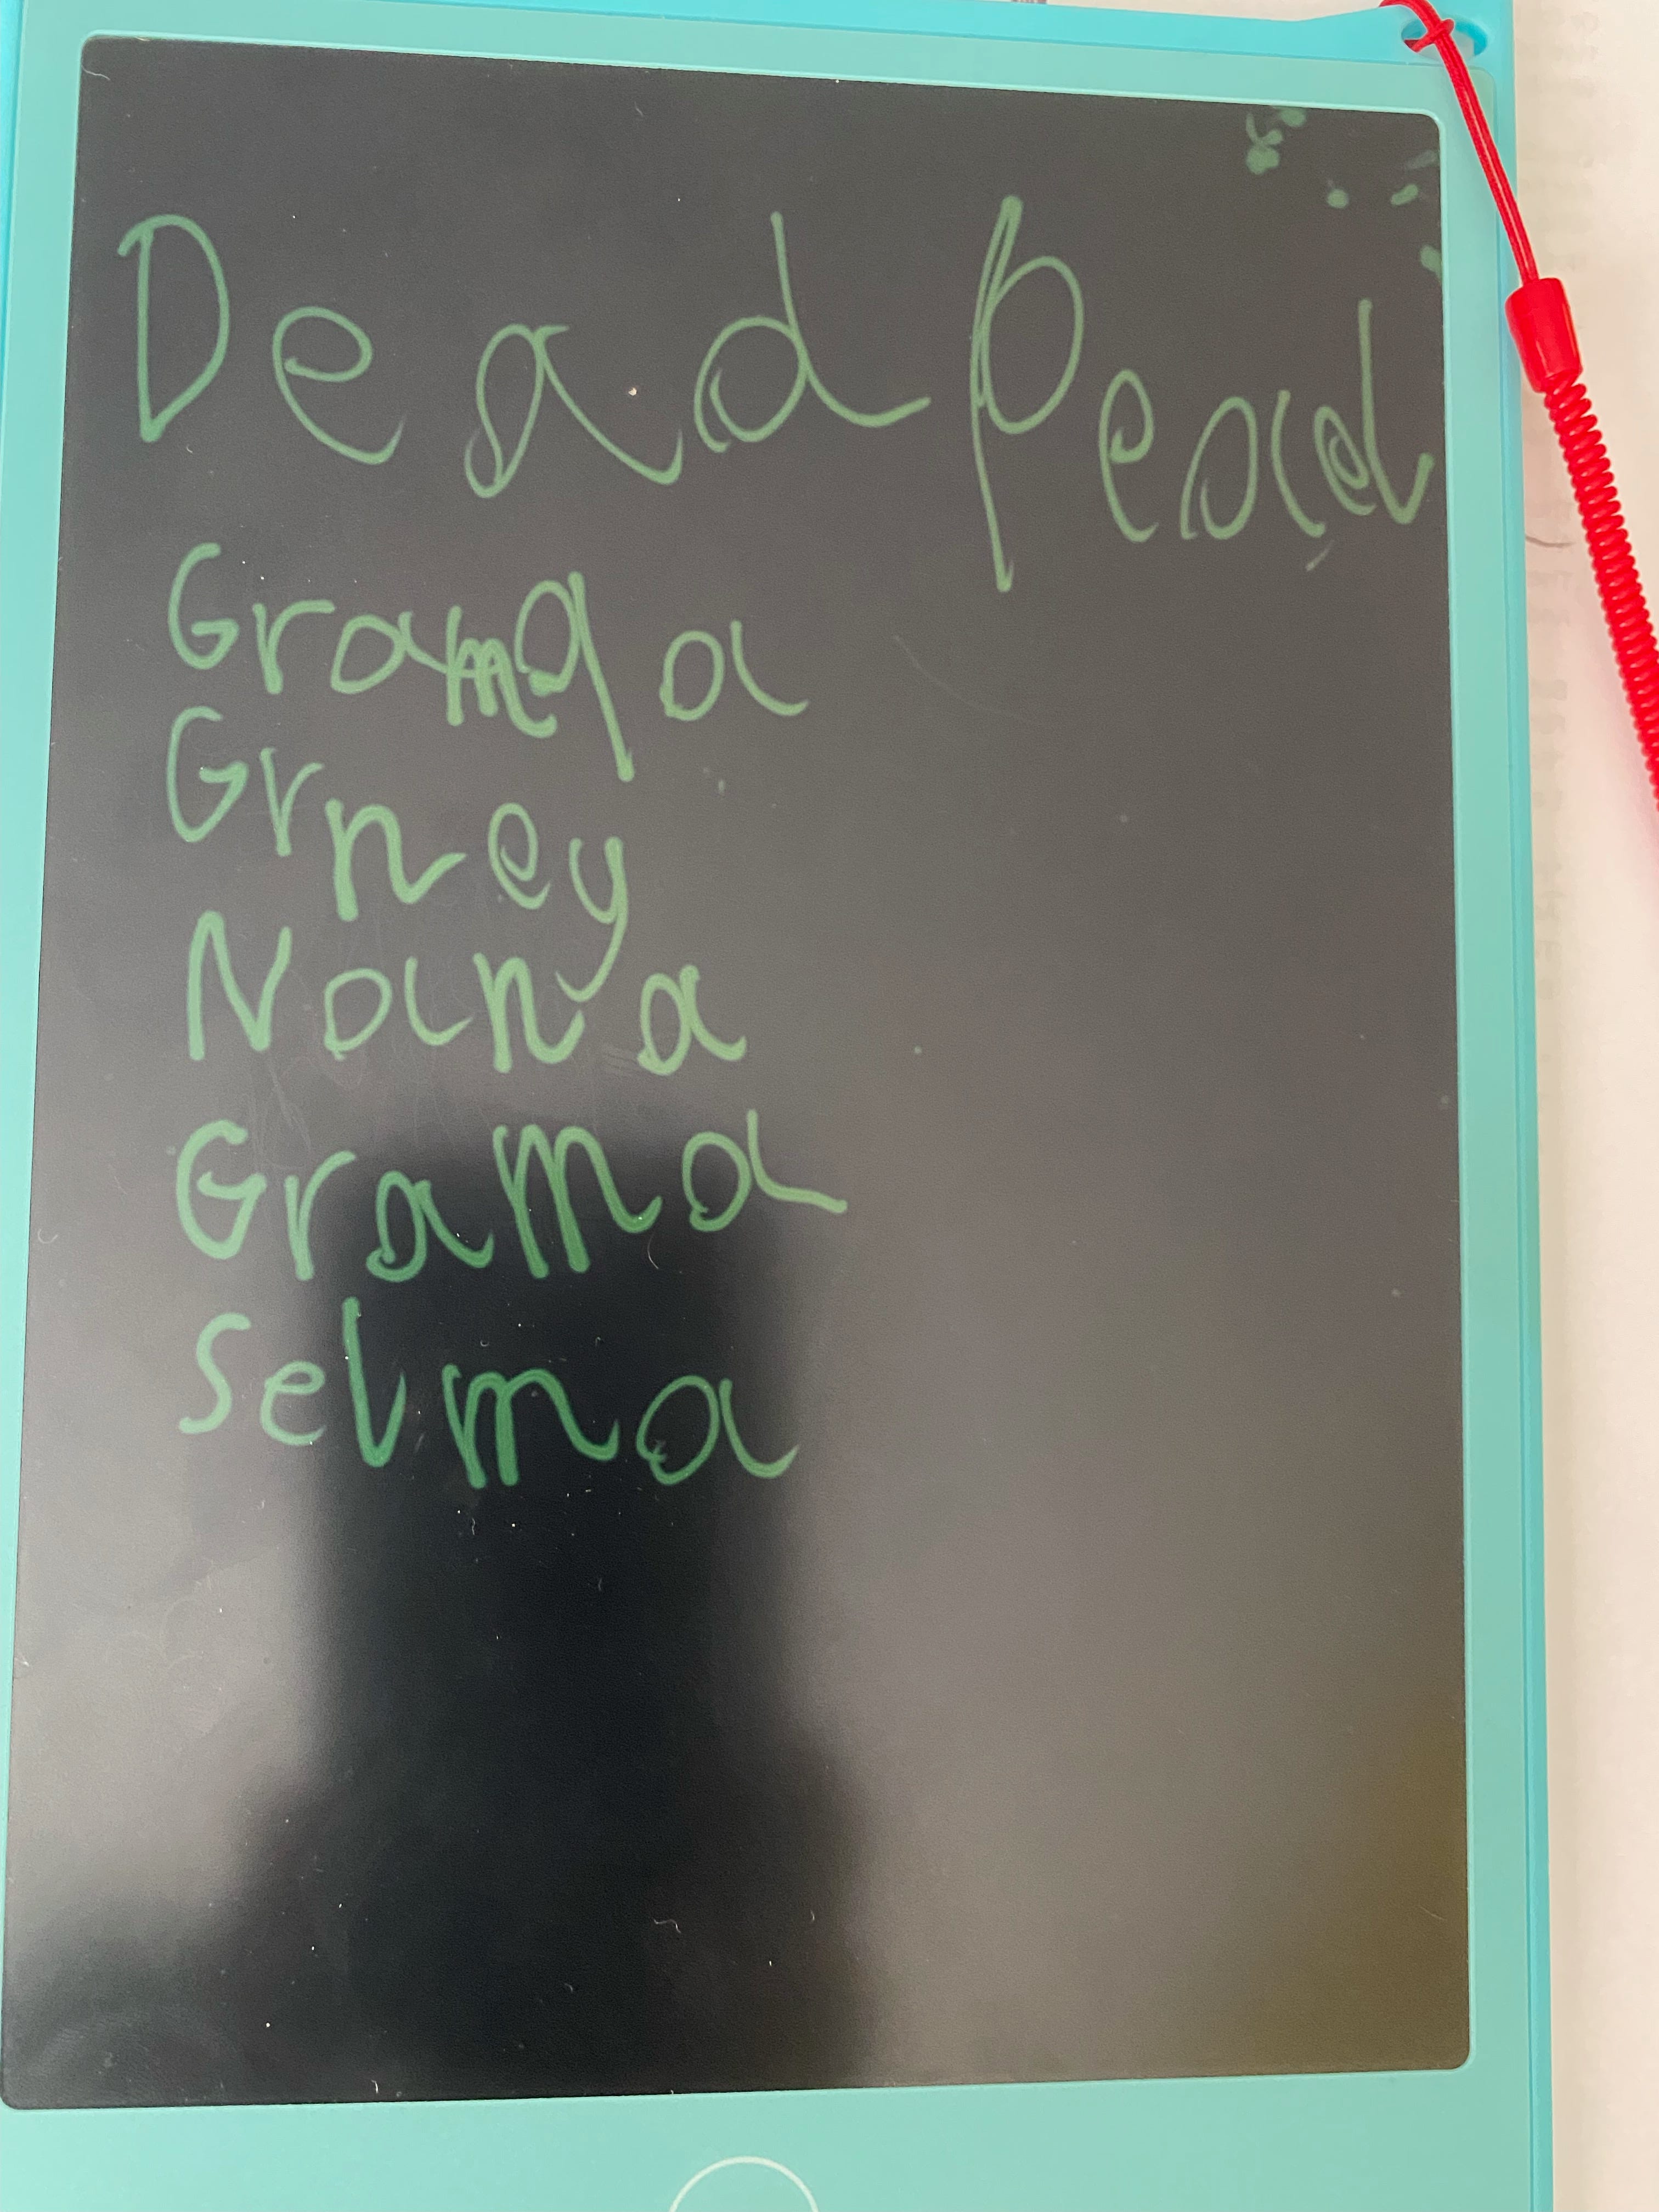 Dead Peaal
Grampa
Grney
Nana
Grama
Selma